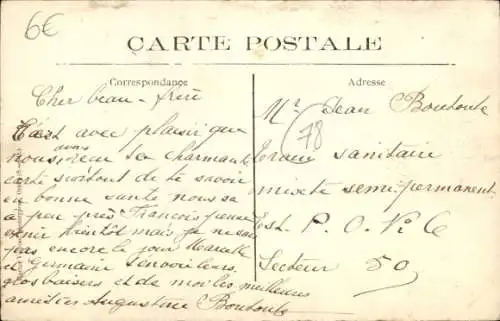 6€
CARTE POSTALE
Correspondance
Adresse
Cher beau-frère
C'est avec plaisir que
nous avons reçu ta charmante
carte surtout de te savoir
en bonne santé nous sa
a peu près François pense
venir bientôt mais je ne sais
pas encore le jour Marcelle
et Germaine t'envoi leurs
gros baisers et de moi les meilleures
amitiés Augustine Boutoute
Mr Jean Boutoute
78
Train sanitaire
mixte semi-permanent
Est P. O. No 6
Secteur 50